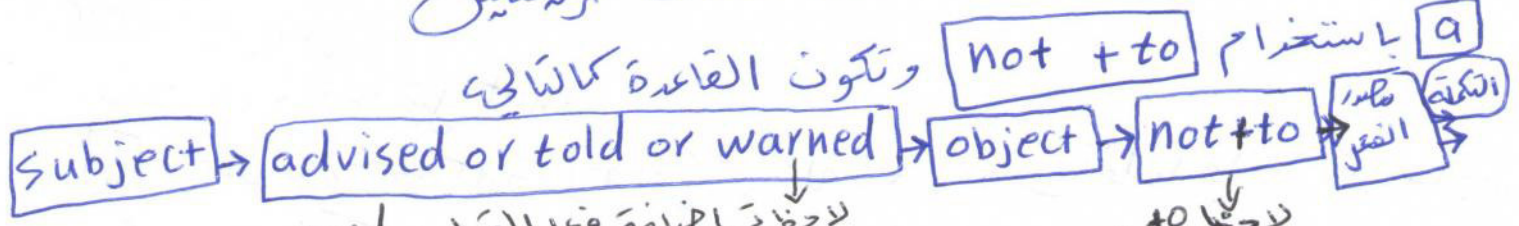 a باستخدام not + to وتكون القاعدة كالتالي
subject → advised or told or warned → object → not + to → مصدر الفعل → التكملة